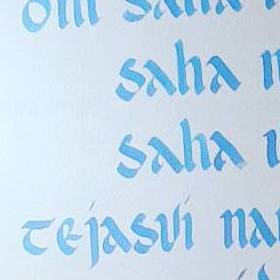 om saha
saha
saha
tejasvi na